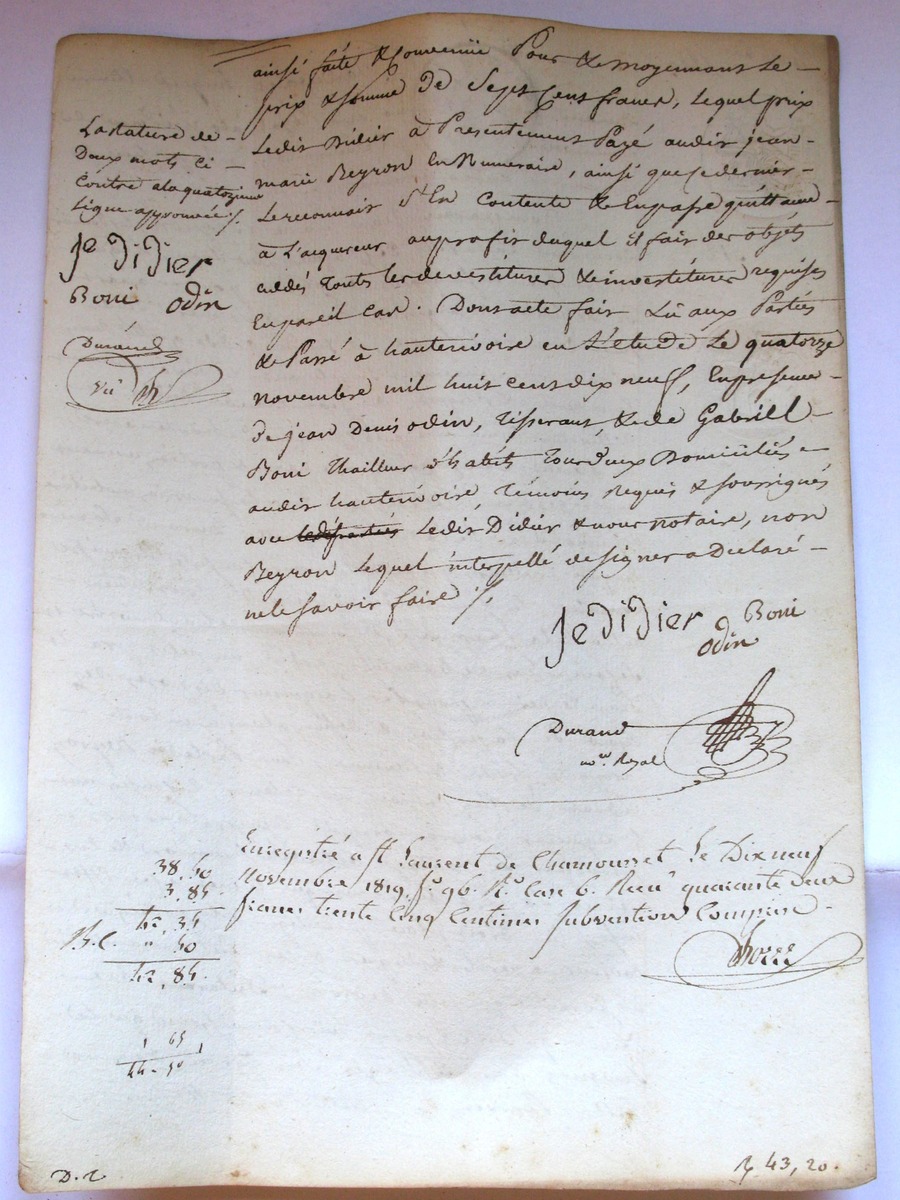 ainsi faite & convenüe Pour & moyennant Le
prix & somme de Sept Cent francs, Lequel prix
Ledit Didier à Presentement Payé audit jean
marie Beyron En Numeraire, ainsi que ce dernier
Le reconnait S'En Contente & En passe quittance
à L'aquereur au profit duquel il fait des objets
cédés touts les devestitures & investitures requises
En pareil Cas. Dont acte fait Lû aux Parties
& Passé à hauterivoire en L'etude Le quatorze
novembre mil huit cent dix neuf, En presence
de jean Denis odin, tisserant, & de Gabriell
Boni thailleur d'habits tous deux Domiciliés
audit hauterivoire témoins Requis & soussignés
avec Ledit Didier & nous notaire, non
Beyron Lequel interpellé de signer a Declaré
ne le savoir faire ./.
La rature de
Deux mots ci
Contre a la quatorzieme
Ligne approuvée ./.
Je Didier
Boni odin
Durand
Je Didier Boni
odin
Durand
no.re Royal
Enregistré a St Laurent de Chamousset Le Dix neuf
novembre 1819, f.o 96. R.o Case 6. Recu quarante deux
francs trente Cinq Centimes subvention Comprise
38,50
3,85
42,35
" 50
42,85
1 65
44-50
43,20.